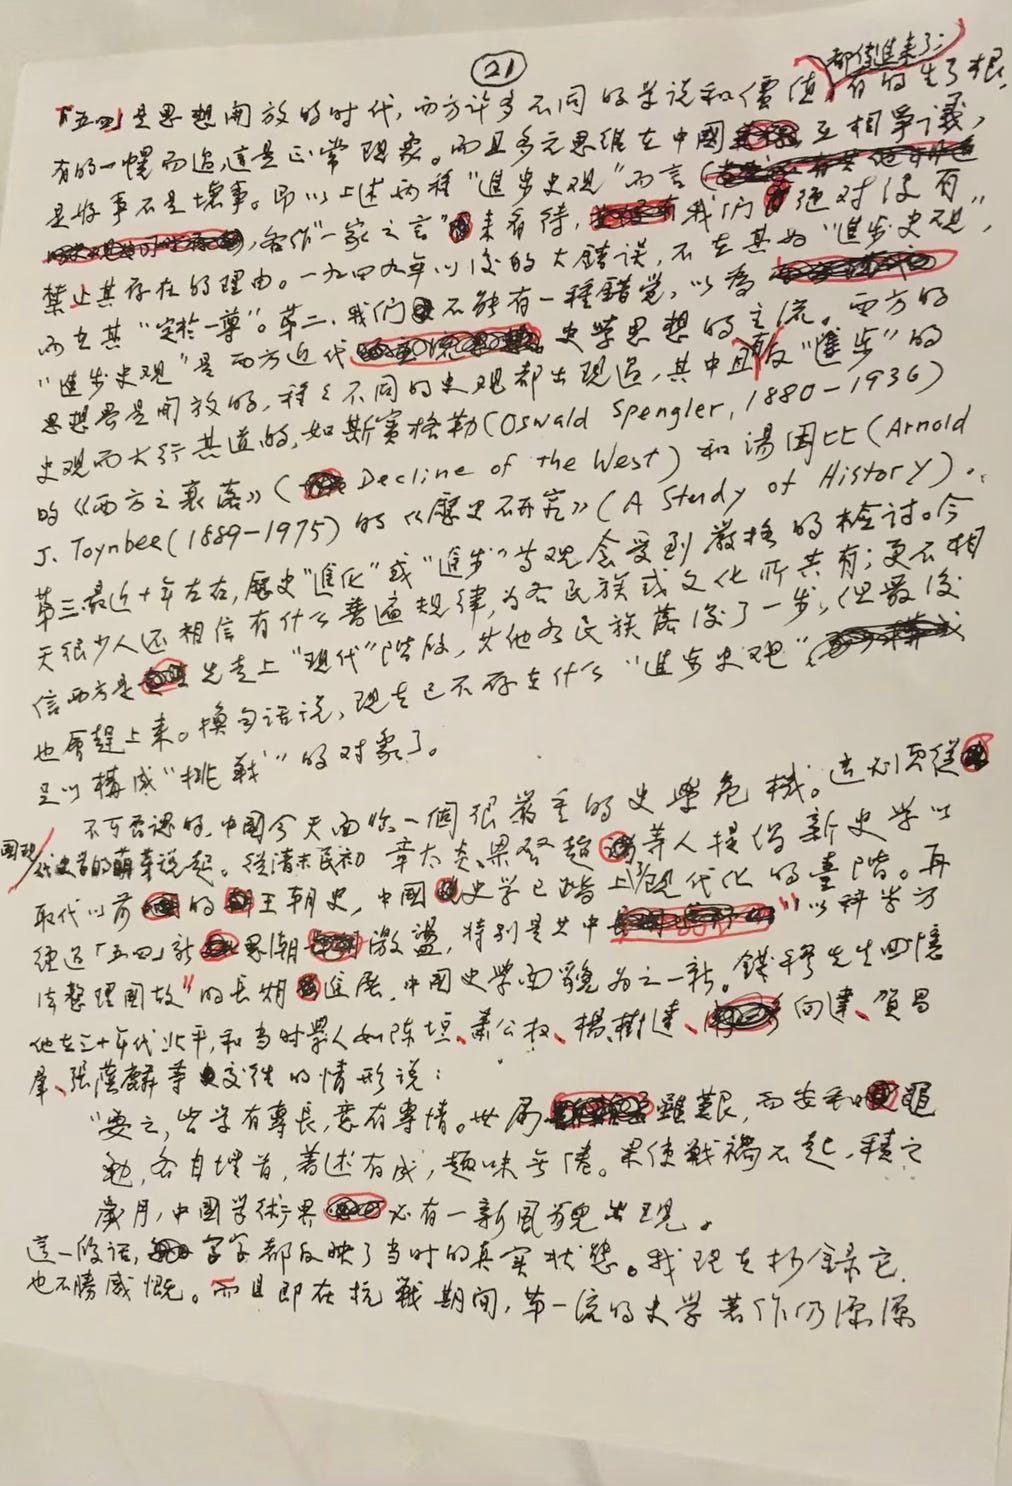 21
都傳進来了;
「五四」是思想開放的时代，西方許多不同的学说和價值，有的生了根，
有的一幌而过，这是正常現象。而且多元思维在中國互相爭議，
是好事不是壞事。即以上述两種“進步史观”而言
，各作“一家之言”来看待，我们绝对没有
禁止其存在的理由。一九四九年以後的大錯误，不在其为“進步史观”，
而在其“定於一尊”。第二、我们不能有一種錯觉，以為
“進步史观”是西方近代史学思想的主流。西方的
思想界是開放的，種々不同的史观都出现过，其中且有反“進步”的
史观而大行其道的，如斯賓格勒(Oswald Spengler, 1880-1936)
的《西方之衰落》(Decline of the West)和湯因比(Arnold
J. Toynbee(1889-1975)的《歷史研究》(A Study of History)。
第三、最近十年左右，歷史“進化”或“進步”等观念受到嚴格的检讨。今
天很少人还相信有什么普遍规律，为各民族或文化所共有；更不相
信西方是先走上“现代”階段，其他各民族落後了一步，但最後
也會趕上来。换句话说，现在已不存在什么“進步史观”
足以構成“挑戰”的对象了。
不可否认的，中國今天面临一個很嚴重的史學危機。这必须從
國现
代史学的萌芽说起。從清末民初章太炎、梁啓超等人提倡新史学以
取代以前的王朝史，中國史学已踏上现代化的臺階。再
经过「五四」新思潮激盪，特别是其中“以科学方
法整理國故”的長期進展，中國史学面貌为之一新。錢穆先生回憶
他在三十年代北平，和当时學人如陳垣、蕭公权、楊樹達、向達、賀昌
羣、張蔭麟等交往的情形说：
“要之，皆学有專長，意有專情。世局雖艱，而安和黽
勉，各自埋首，著述有成，趣味无倦。果使戰禍不起，積之
歲月，中國学術界必有一新風貌出现。
這一段话，字字都反映了当时的真实状態。我现在抄録它，
也不勝感慨。而且即在抗戰期间，第一流的史学著作仍源源